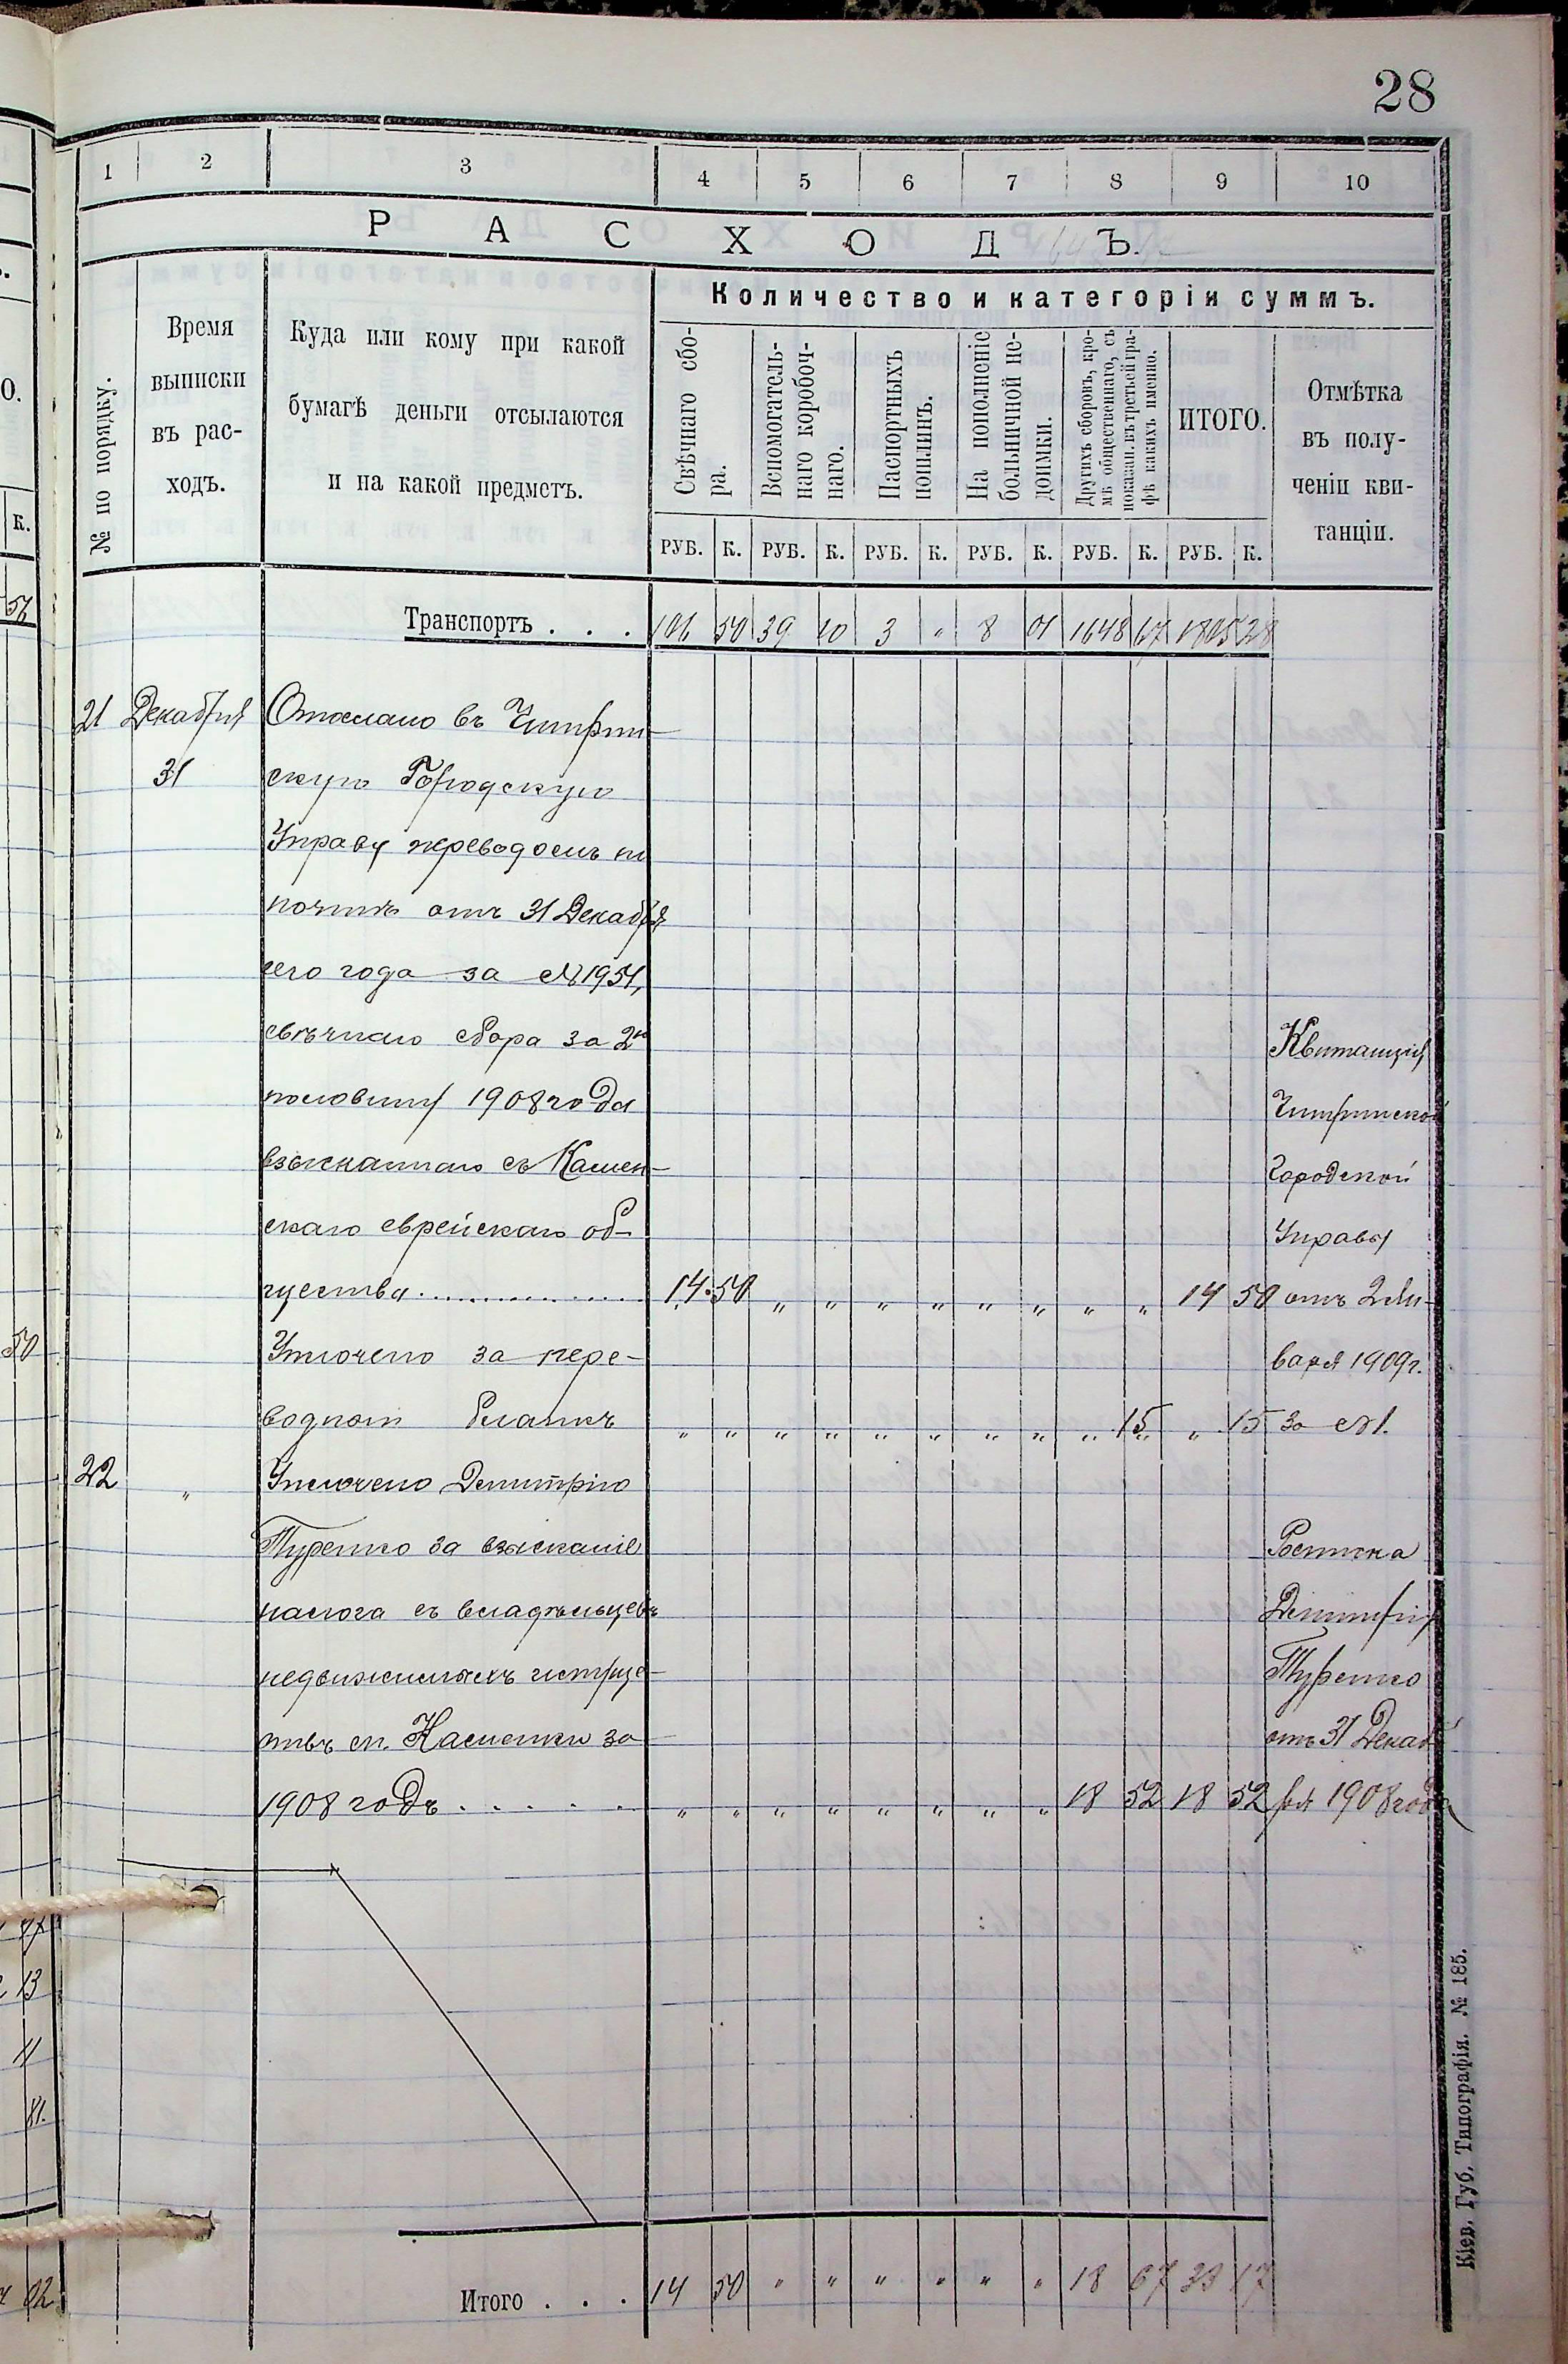 28
1 2 3 4 5 6 7 8 9 10
РАСХОДЪ.
Количество и категоріи суммъ.
№ по порядку.
Время
выписки
въ рас-
ходъ.
Куда или кому при какой
бумагѣ деньги отсылаются
и на какой предметъ.
Свѣчнаго сбо-
ра.
Вспомогатель-
наго коробоч-
наго.
Паспортныхъ
пошлинъ.
На пополненіе
больничной не-
доимки.
Другихъ сборовъ, кро-
мѣ общественнаго, съ
показан. въ третьей гра-
фѣ какихъ именно.
ИТОГО.
Отмѣтка
въ полу-
ченіи кви-
танціи.
РУБ. К. РУБ. К. РУБ. К. РУБ. К. РУБ. К. РУБ. К.
Транспортъ . . . 106 50 39 10 3 „ 8 01 1648 67 1805 28
21 Декабря Отослано въ Чигирин-
31 скую Городскую
Управу переводомъ по
почтѣ отъ 31 Декабря
сего года за №1954,
свѣчнаго сбора за 2ю
половину 1908 года
взысканнаго съ Камен-
скаго еврейскаго об-
щества 14 50 „ „ „ „ „ „ „ „ 14 50
Уплочено за пере-
водной бланкъ „ „ „ „ „ „ „ „ „ 15 „ 15
Квитанція
Чигиринской
Городской
Управы
отъ 2 Ян-
варя 1909 г.
за №1.
22 „ Уплочено Димитрію
Туренко за взысканіе
налога съ владѣльцевъ
недвижимыхъ имуще-
ствъ м. Каменки за
1908 годъ . . . . . „ „ „ „ „ „ „ „ 18 52 18 52
Росписка
Димитрія
Туренко
отъ 31 Декаб-
ря 1908 года
Итого . . . 14 50 „ „ „ „ „ „ 18 67 33 17
Кіев. Губ. Типографія. № 185.